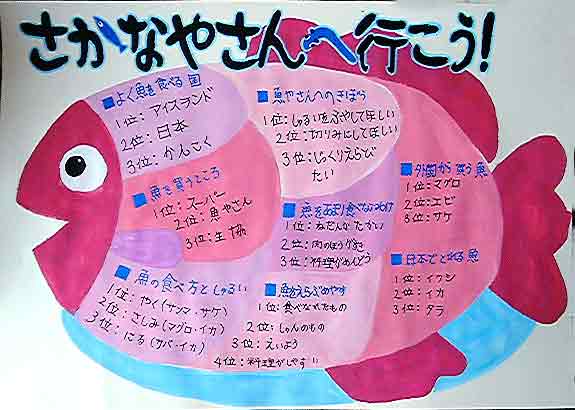 さかなやさんへ行こう!
■よく魚を食べる国
1位:アイスランド
2位:日本
3位:かんこく
■魚やさんへのきぼう
1位:しゅるいをふやしてほしい
2位:切りみにしてほしい
3位:じっくりえらび
たい
■魚を買うところ
1位:スーパー
2位:魚やさん
3位:生協
■外国から買う魚
1位:マグロ
2位:エビ
3位:サケ
■魚をあまり食べない
1位:ねだんがたかい
2位:肉のほうがすき
3位:料理がめんどう
■日本でとれる魚
1位:イワシ
2位:イカ
3位:タラ
■魚の食べ方としゅるい
1位:やく(サンマ・サケ)
2位:さしみ(マグロ・イカ)
3位:にる(サバ・イカ)
■魚をえらぶめやす
1位:食べなれたもの
2位:しゅんのもの
3位:えいよう
4位:料理がしやすい